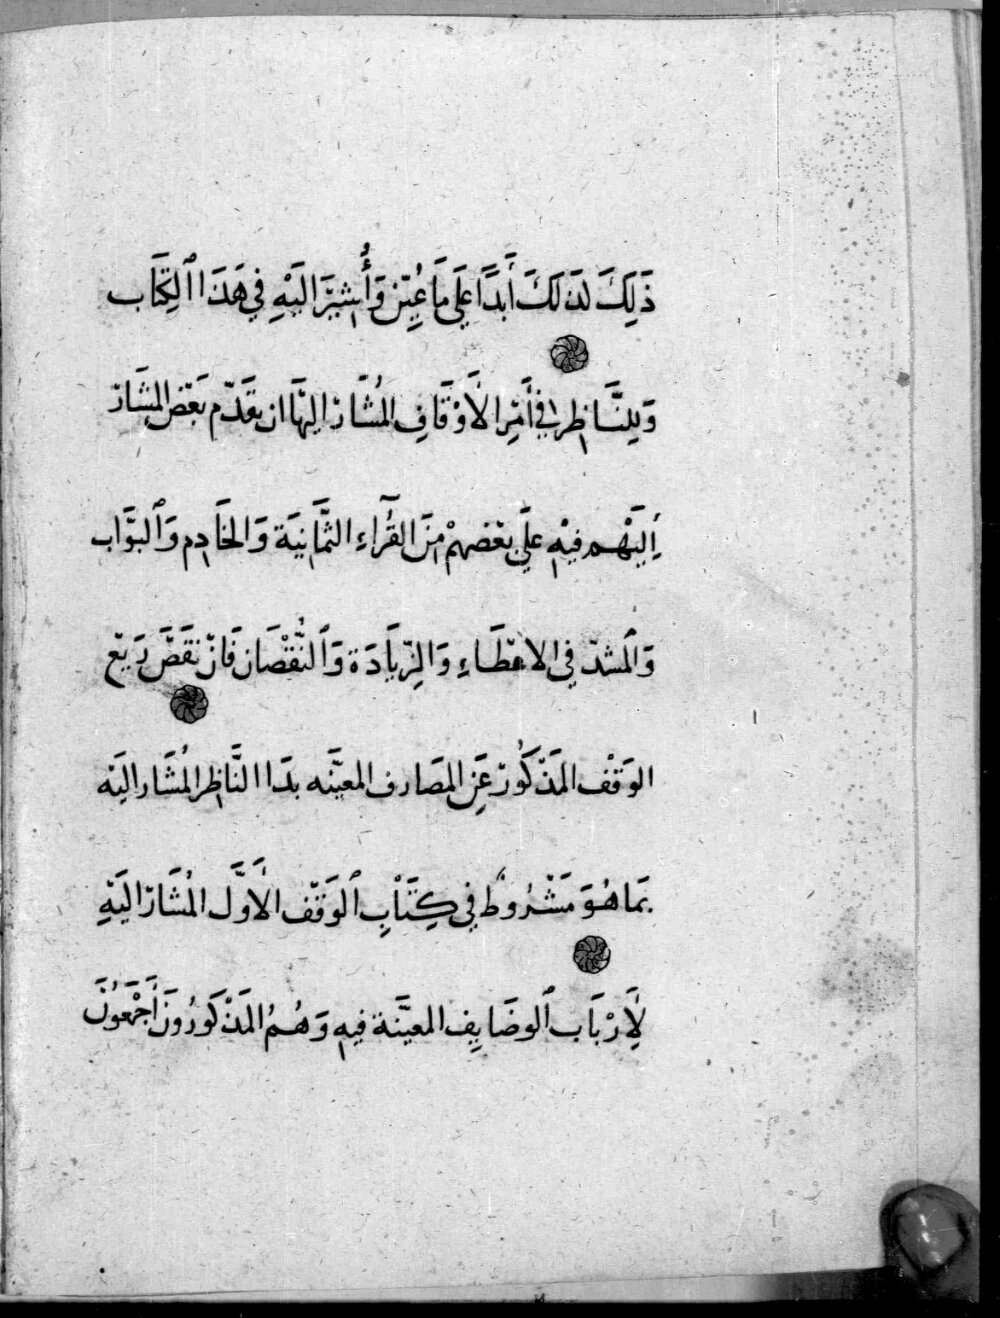 ذَلِكَ لذَلكَ أَبَدًا عَلَى مَا عُيِّنَ وَأُشِيرَ الَيْهِ فِي هَذَا الكِتَاب
وَلِلنَّاظِر فِي أَمْرِ الأَوْقَافِ المُشَار اليْهَا ان يقَدّم بَعْض المشَار
اِلَيْهم فيْهِ عَلَى بعْضهمْ مِنَ القُرَّاءِ الثَّمَانِيَة وَالخَادِم وَالبَوَّاب
وَالمشدّ فِي الاعْطَاءِ وَالزِّيَادَة وَالنُّقْصَان فَانْ نقَصَ رَيْع
الوَقْف المَذْكُورْ عَنِ المصَارف المعيَّنه بدَا النَّاظِر المُشَار اليَه
بمَا هُوَ مَشْرُوطٌ فِي كِتَابِ الوَقْف الأَوَّل المُشَارْ اليَهِ
لِأَرْبَاب الوضَايِف المعيَّنة فيهِ وَهُمُ المَذْكُورُونَ أَجْمَعُونَ